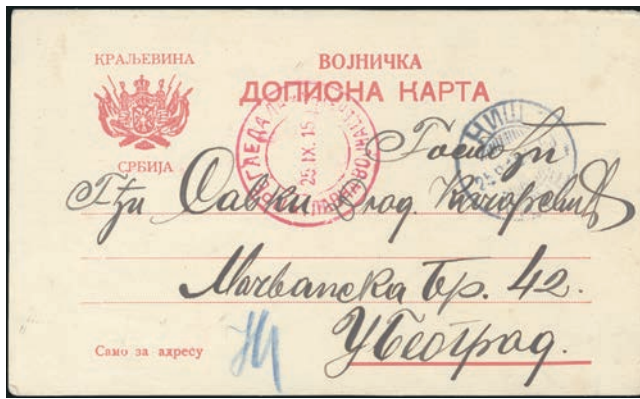 КРАЉЕВИНА
СРБИЈА
ВОЈНИЧКА
ДОПИСНА КАРТА
25 IX. 15
НИШ
Госпођи
Гђи Савки
Мачванска бр. 42.
У Београд.
Само за адресу